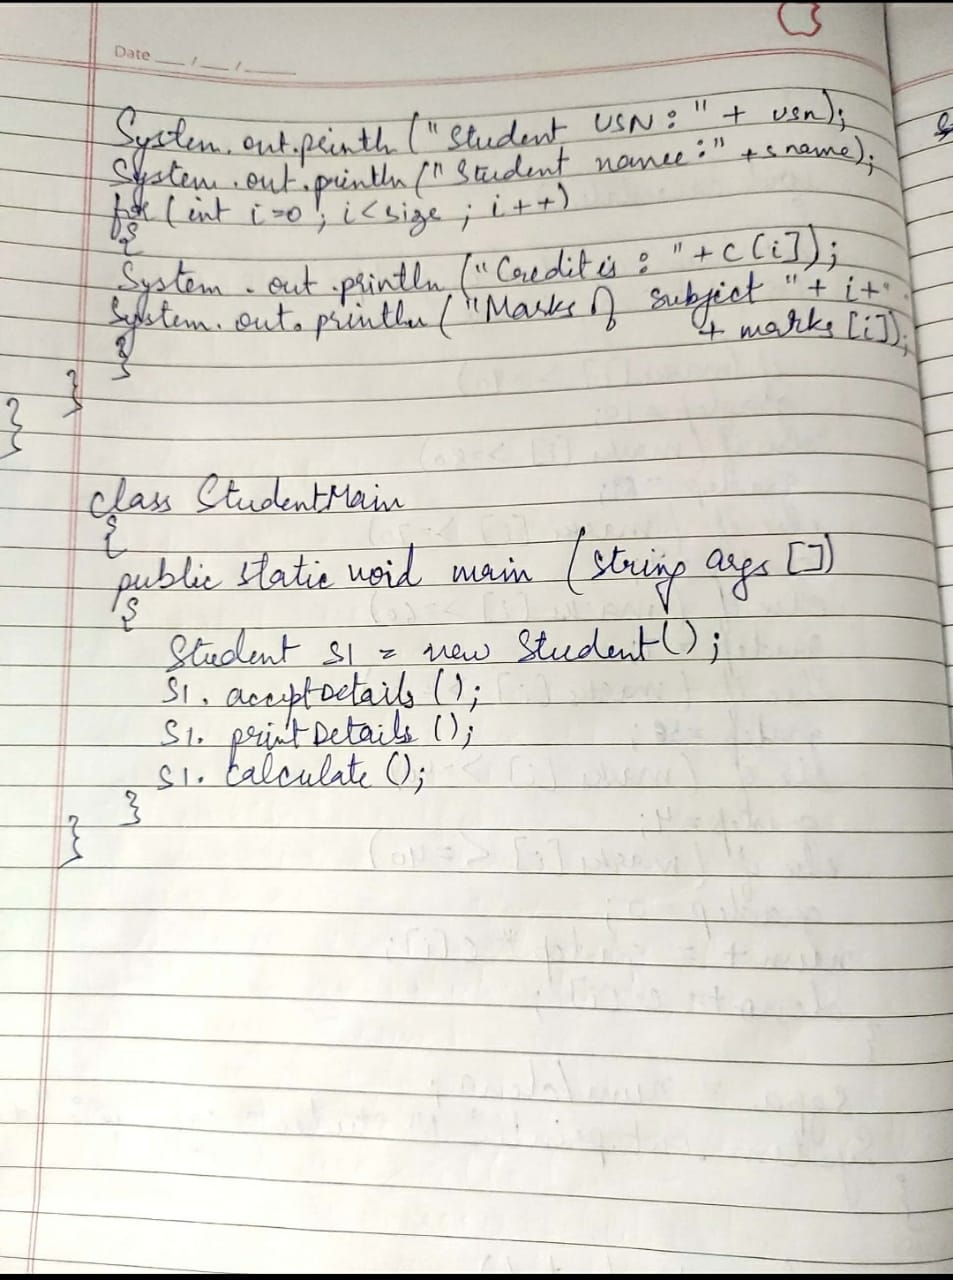 Date __/__/____
System.out.println ("Student USN : " + usn);
System.out.println (" Student name :" + sname);
for (int i=0 ; i<size ; i++)
{
System.out.println ("Credit is : "+ c[i]);
System.out.println ("Marks of subject "+ i+"
+ marks[i]);
}
}
}
class StudentMain
{
public static void main (String args [])
{
Student s1 = new Student();
S1. acceptDetails ();
S1. printDetails ();
S1. Calculate ();
}
}